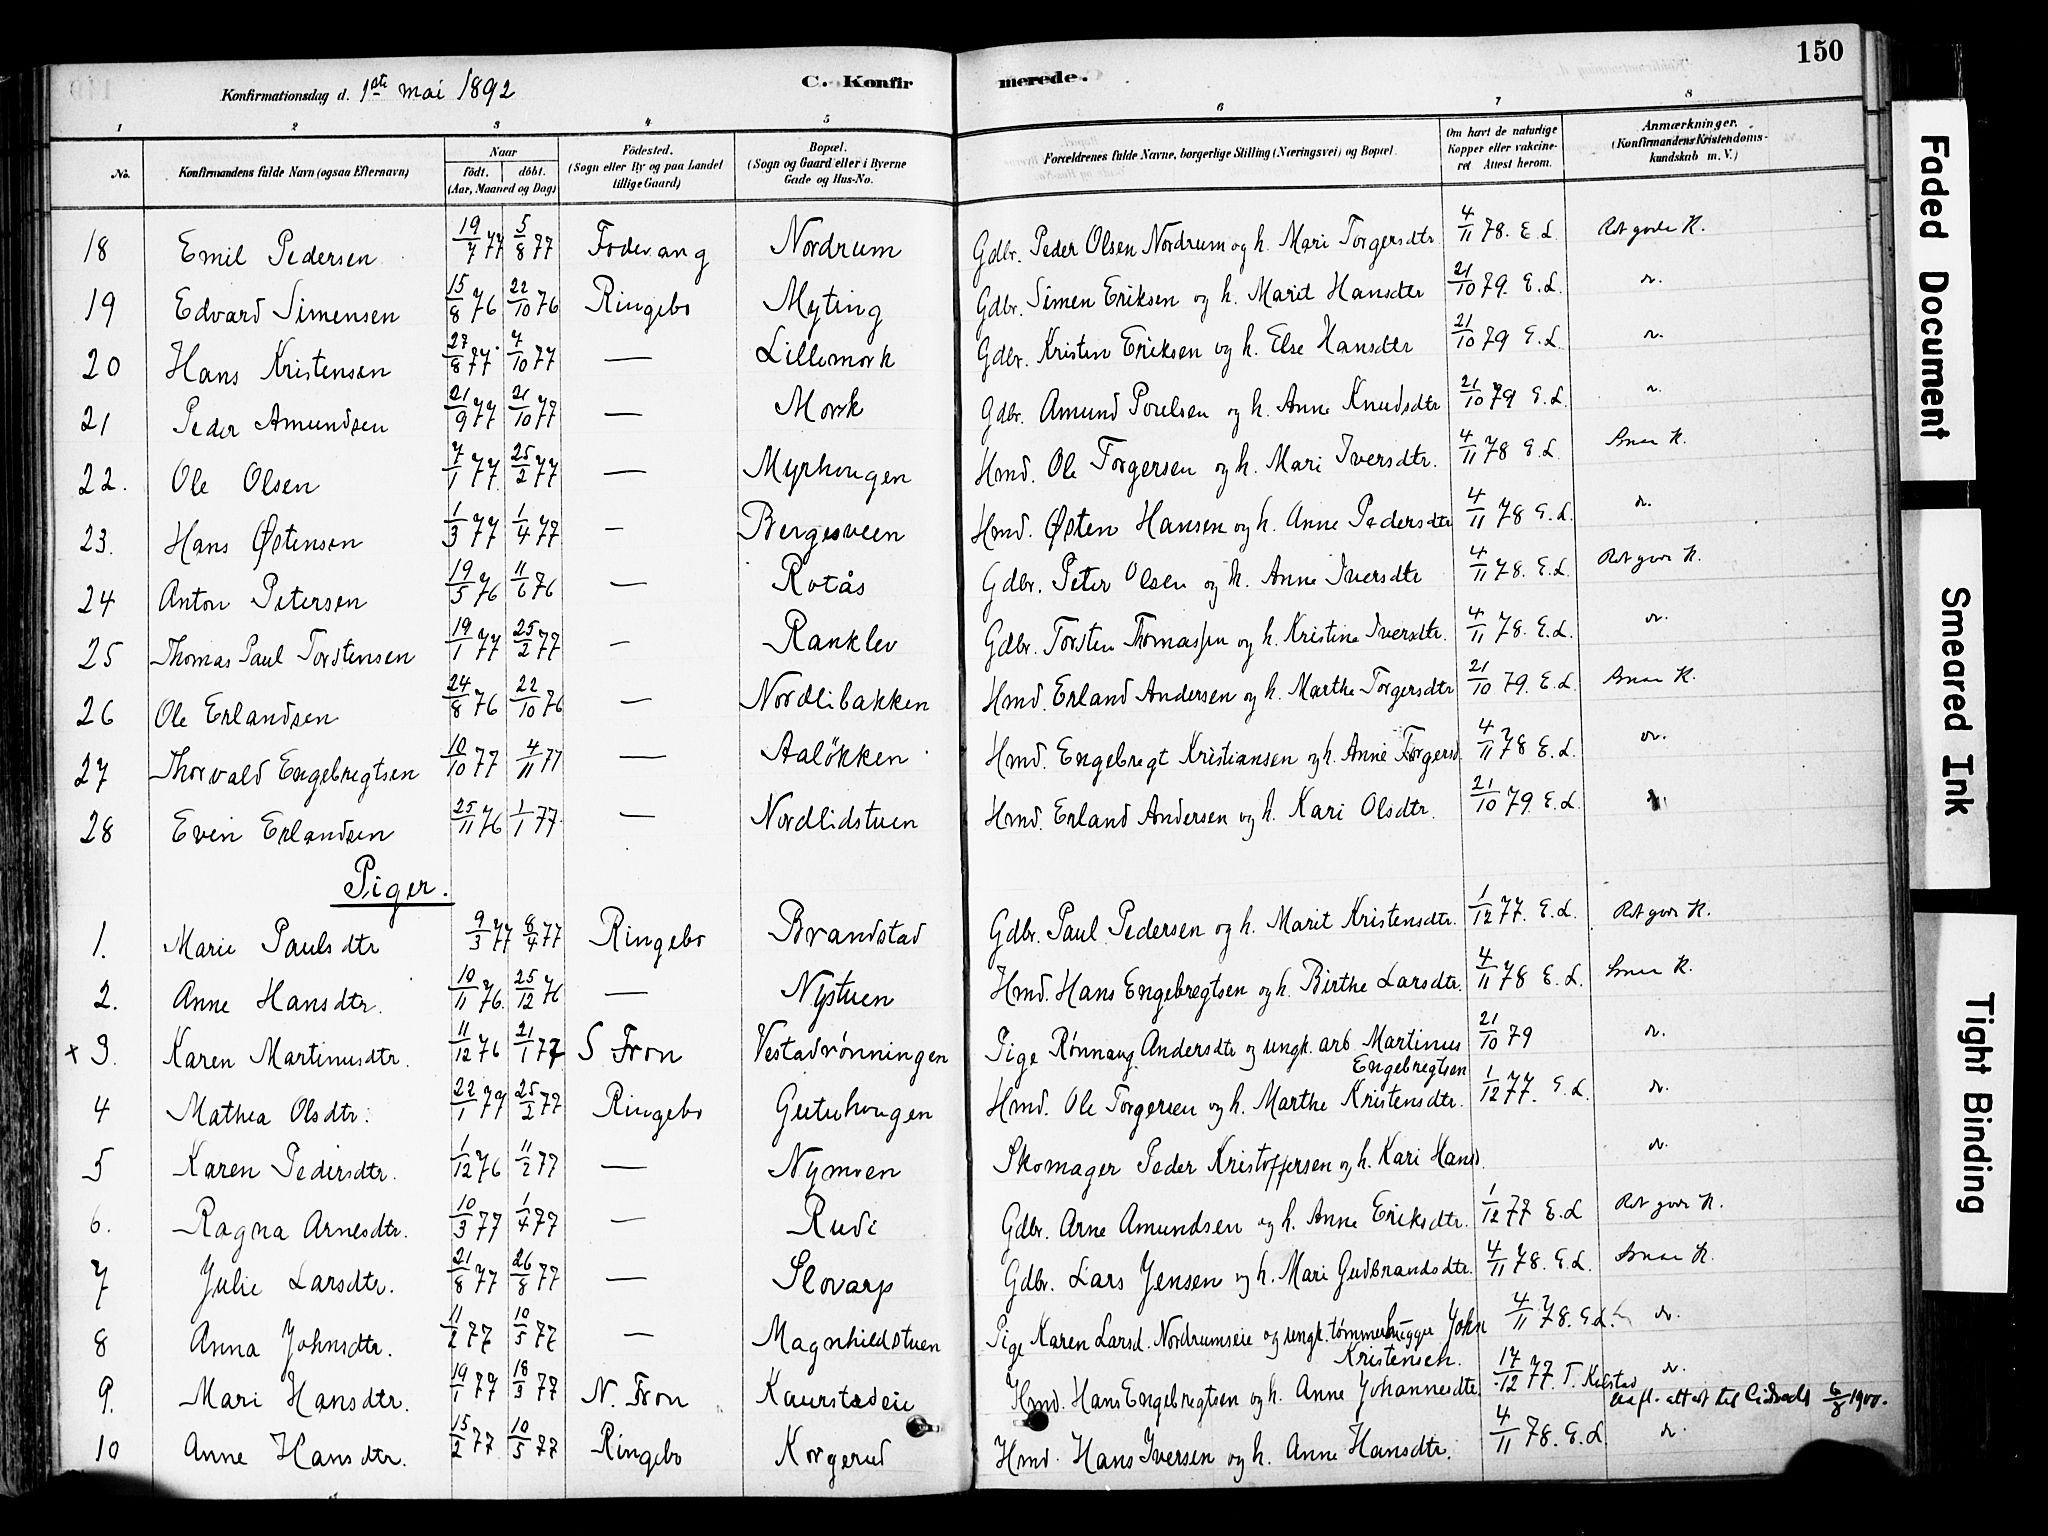 150
Konfirmationsdag d. 1ste mai 1892 C. Konfirmerede.
1 2 3 4 5 6 7 8
No. Konfirmandens fulde Navn (ogsaa Efternavn) Naar født. døbt. (Aar, Maaned og Dag) Fødested. (Sogn eller By og paa Landet tillige Gaard) Bopæl. (Sogn og Gaard eller i Byerne Gade og Hus-No. Forældrenes fulde Navne, borgerlige Stilling (Næringsvei) og Bopæl. Om havt de naturlige Kopper eller vakcineret Attest herom. Anmærkninger. (Konfirmandens Kristendomskundskab m. V.)
18 Emil Pedersen 19/7 77 5/8 77 Fodvang Nordrum Gdbr. Peder Olsen Nordrum og h. Mari Torgersdtr 4/11 78. E. L. Ret gode K.
19 Edvard Simensen 15/8 76 22/10 76 Ringebo Myting Gdbr. Simen Eriksen og h. Marit Hansdtr 21/10 79. E. L.
20 Hans Kristensen 27/8 77 7/10 77 — Lillemork Gdbr. Kristen Eriksen og h. Else Hansdtr 21/10 79 E. L.
21 Peder Amundsen 21/9 77 21/10 77 — Mork Gdbr. Amund Poulsen og h. Anne Knudsdtr 21/10 79 E. L.
22. Ole Olsen 7/1 77 25/2 77 — Myrhougen Hmd. Ole Torgersen og h. Mari Iversdtr. 4/11 78 E. L.
23. Hans Østensen 1/3 77 1/4 77 — Bergesveen Hmd. Østen Hansen og h. Anne Pedersdtr 4/11 78 E. L.
24 Anton Petersen 19/5 76 11/6 76 — Rotås Gdbr. Peter Olsen og h. Anne Iversdtr 4/11 78. E. L. Ret gode K.
25 Thomas Paul Torstensen 19/1 77 25/2 77 — Ranklev Gdbr. Torsten Thomassen og h. Kristine Iversdtr. 4/11 78. E. L.
26 Ole Erlandsen 24/8 76 22/10 76 — Nordlibakken Hmd. Erland Andersen og h. Marthe Torgersdtr 21/10 79. E. L.
27 Thorvald Engebregtsen 10/10 77 4/11 77 — Aaløkken Hmd. Engebregt Kristiansen og h. Anne Torgersd. 4/11 78 E. L.
28 Even Erlandsen 25/11 76 1/1 77. — Nordlidstuen Hmd. Erland Andersen og h. Kari Olsdtr. 21/10 79. E. L.
Piger.
1. Marie Paulsdtr 9/3 77 8/4 77 Ringebo Brandstad Gdbr. Paul Pedersen og h. Marit Kristensdtr. 1/12 77. E. L. Ret gode K.
2. Anne Hansdtr. 10/11 76. 25/12 76 — Nystuen Hmd. Hans Engebregtsen og h. Birthe Larsdtr. 4/11 78 E. L.
+ 3. Karen Martinusdtr. 11/12 76 21/1 77 S Fron Vestadrønningen Pige Rønnaug Andersdtr og ungk. arb Martinus Engebregtsen 21/10 79
4 Mathea Olsdtr. 22/1 77 25/2 77 Ringebo Geituhougen Hmd. Ole Torgersen og h. Marthe Kristensdtr. 1/12 77. E. L.
5 Karen Pedersdtr. 1/12 76 11/2 77 — Nymoen Skomager Peder Kristoffersen og h. Kari Hansd.
6. Ragna Arnesdtr. 10/3 77 1/4 77 — Rudi Gdbr. Arne Amundsen og h. Anne Eriksdtr. 1/12 77 E. L Ret gode K.
7 Julie Larsdtr. 21/8 77 26/8 77 — Slovarp Gdbr. Lars Jensen og h. Mari Gudbrandsdtr. 4/11 78. E. L.
8 Anna Johnsdtr. 11/2 77 10/5 77 — Magnhildstuen Pige Karen Larsd. Nordrumseie og ungk. tømmerhugger John Kristensen. 4/11 78. E. L.
9. Mari Hansdtr. 19/1 77 18/3 77 N. Fron Kaurstadeie Hmd. Hans Engebregtsen og h. Anne Johannesdtr 17/12 77. T. 6/8 1900.
10 Anne Hansdtr. 15/2 77 10/5 77 Ringebo Korgerud Hmd. Hans Iversen og h. Anne Hansdtr. 4/11 78. E. L
Faded Document
Smeared Ink
Tight Binding